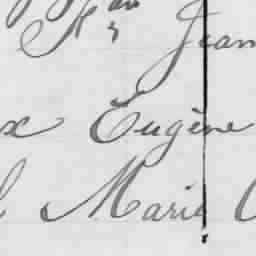 Jean
x Eugène
l Marie